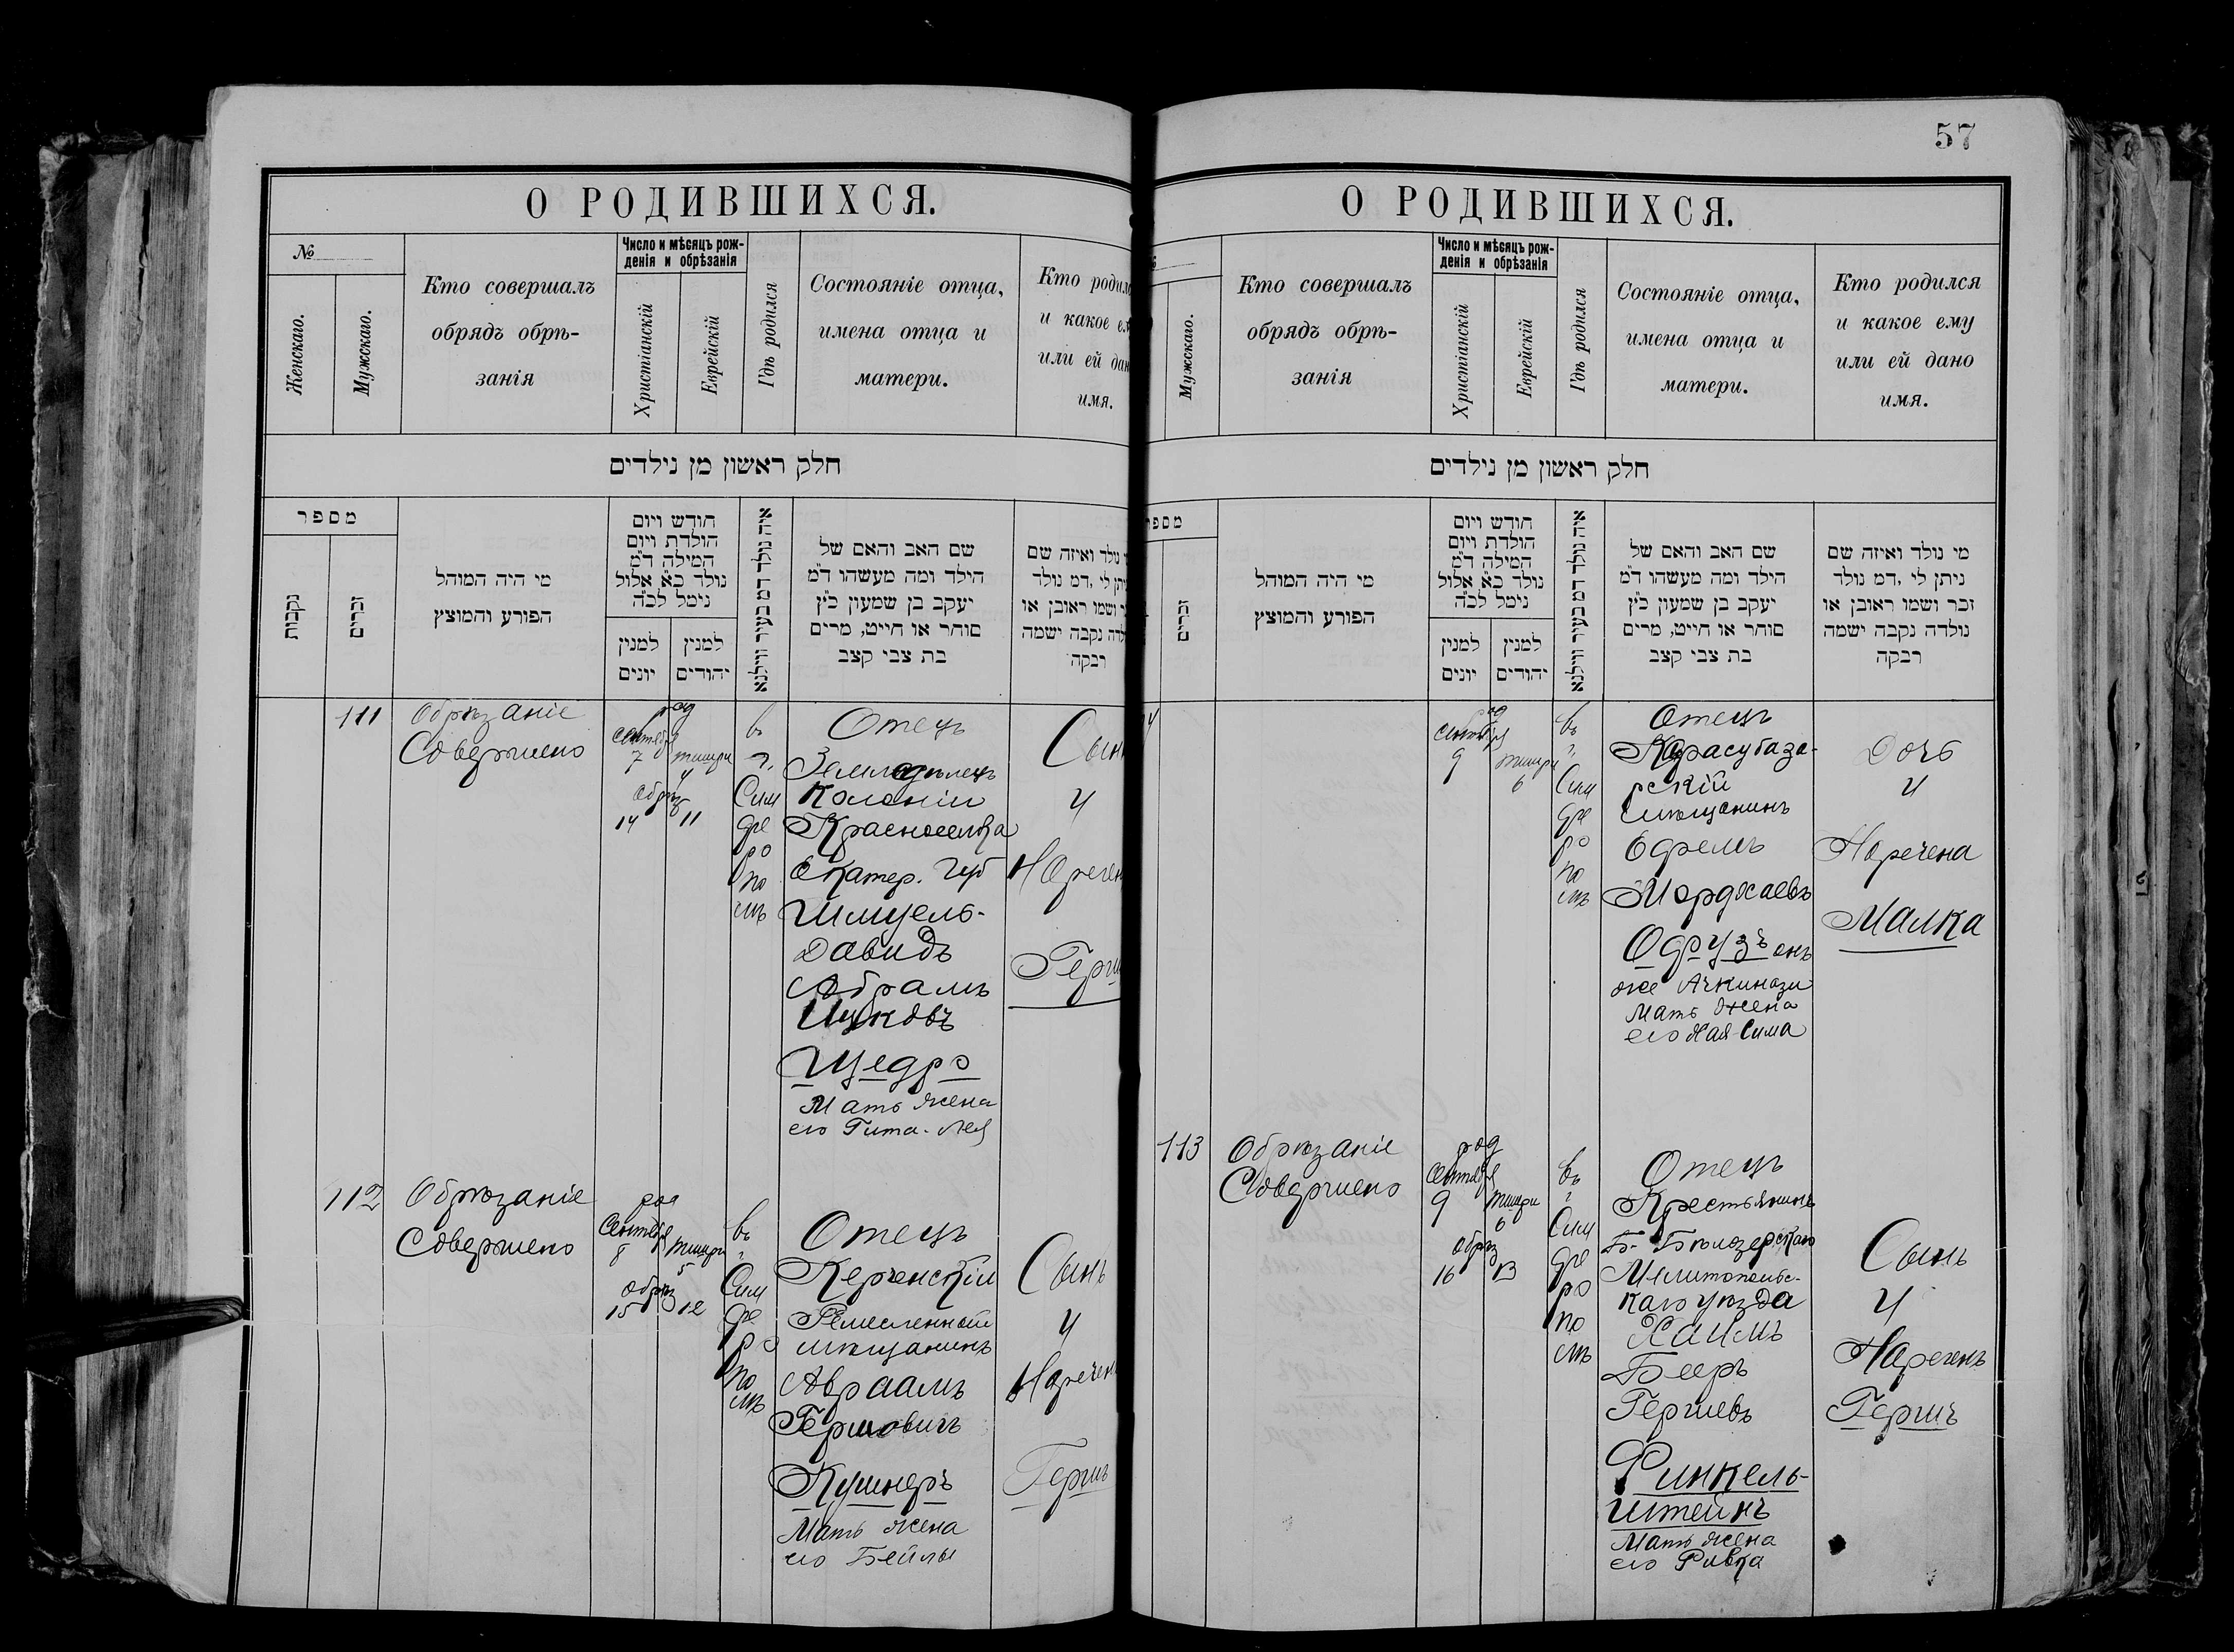 О РОДИВШИХСЯ.
№
Женскаго.
Мужскаго.
Кто совершалъ
обрядъ обрѣ-
занія
Число и мѣсяцъ рож-
денія и обрѣзанія
Христіанскій
Еврейскій
Гдѣ родился
Состояніе отца,
имена отца и
матери.
Кто родил
и какое е
или ей дан
имя.
חלק ראשון מן נילדים
מספר
נקבות
זכרים
מי היה המוהל
הפורע והמוצץ
חודש ויום
הולדת ויום
המילה ד״מ
נולד כ״א אלול
נימל לכ״ה
למנין
יונים
למנין
יהודים
איה נולד דמ בעיר ווילנא
שם האב והאם של
הילד ומה מעשהו ד״מ
יעקב בן שמעון כ״ץ
סוחר או חייט, מרים
בת צבי קצב
נולד ואיזה שם
יתן לי ,דמ נולד
ושמו ראובן או
לדה נקבה ישמה
רבקה
111
Обрѣзаніе
Совершено
род
Сентября
7 Тишри
4
Обрѣз
14 11
въ
г.
Сим
фе
ро
по
лѣ
Отецъ
Земледѣлецъ
Колоніи
Красноселка
Екатер. Губ
Шмуель-
Давидъ
Абрамъ
Ицковъ
Щедро
Мать жена
его Гита-Лея
Сынъ
И
Наречен
Герш
112
Обрѣзаніе
Совершено
род
Сентября
8 Тишри
5
Обрѣз
15 12
въ
г.
Сим
фе
ро
по
лѣ
Отецъ
Керченскій
Ремесленный
мѣщанинъ
Авраамъ
Гершовичъ
Кушнеръ
Мать жена
его Бейлы
Сынъ
И
Наречен
Гершъ
57
О РОДИВШИХСЯ.
Мужскаго.
Кто совершалъ
обрядъ обрѣ-
занія
Число и мѣсяцъ рож-
денія и обрѣзанія
Христіанскій
Еврейскій
Гдѣ родился
Состояніе отца,
имена отца и
матери.
Кто родился
и какое ему
или ей дано
имя.
חלק ראשון מן נילדים
מספ
זכרים
מי היה המוהל
הפורע והמוצץ
חודש ויום
הולדת ויום
המילה ד״מ
נולד כ״א אלול
נימל לכ״ה
למנין
יונים
למנין
יהודים
איה נולד דמ בעיר ווילנא
שם האב והאם של
הילד ומה מעשהו ד״מ
יעקב בן שמעון כ״ץ
סוחר או חייט, מרים
בת צבי קצב
מי נולד ואיזה שם
ניתן לי ,דמ נולד
זכר ושמו ראובן או
נולדה נקבה ישמה
רבקה
род
Сентября
9 Тишри
6
въ
г.
Сим
фе
ро
по
лѣ
Отецъ
Карасубаза-
рскій
мѣщанинъ
Ефремъ
Мордхаевъ
Одрузъ онъ
же Ачкинази
Мать жена
его Хая-Сима
Дочь
И
Наречена
Малка
113
Обрѣзаніе
Совершено
род
Сентября
9 Тишри
6
Обрѣз
16 13
въ
г.
Сим
фе
ро
по
лѣ
Отецъ
Крестьянинъ
Б-Бѣлозерскаго
Мелитопольс-
каго уѣзда
Хаимъ
Бееръ
Гершевъ
Финкель-
штейнъ
Мать жена
его Ривка
Сынъ
И
Нареченъ
Гершъ